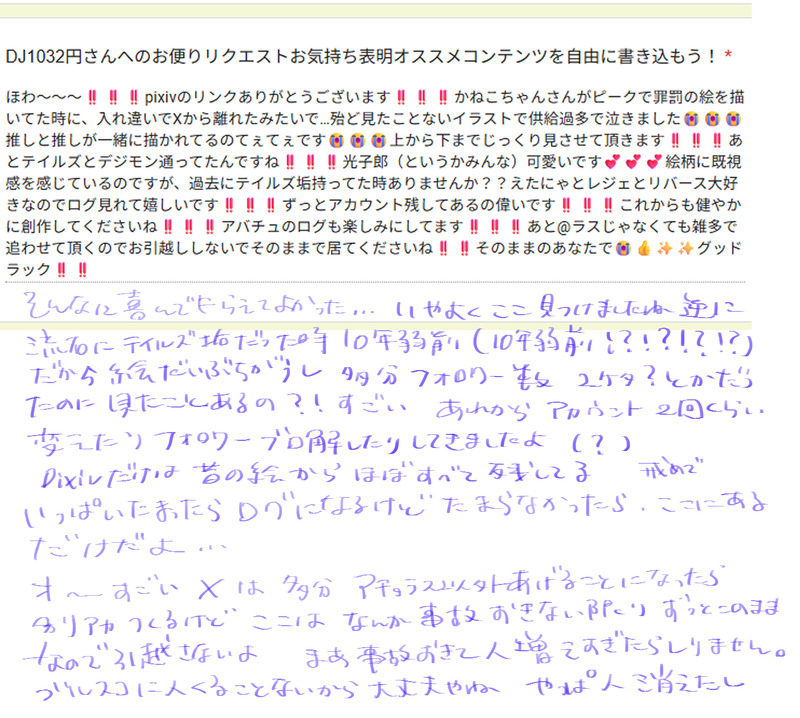 DJ1032円さんへのお便りリクエストお気持ち表明オススメコンテンツを自由に書き込もう！ *
ほわ～～～‼️‼️‼️pixivのリンクありがとうございます‼️‼️‼️かねこちゃんさんがピークで罪罰の絵を描
いてた時に、入れ違いでXから離れたみたいで…殆ど見たことないイラストで供給過多で泣きました😭😭😭
推しと推しが一緒に描かれてるのてぇてぇです😭😭😭上から下までじっくり見させて頂きます‼️‼️‼️あ
とテイルズとデジモン通ってたんですね‼️‼️‼️光子郎（というかみんな）可愛いです💕💕💕絵柄に既視
感を感じているのですが、過去にテイルズ垢持ってた時ありませんか？？えたにゃとレジェとリバース大好
きなのでログ見れて嬉しいです‼️‼️‼️ずっとアカウント残してあるの偉いです‼️‼️‼️これからも健やか
に創作してくださいね‼️‼️‼️アバチュのログも楽しみにしてます‼️‼️‼️あと@ラスじゃなくても雑多で
追わせて頂くのでお引越ししないでそのままで居てくださいね‼️‼️そのままのあなたで😭👍✨✨グッド
ラック‼️‼️
そんなに喜んでもらえてよかった… いやよくここ見つけましたね 逆に
流石にテイルズ垢だった時 10年弱前 (10年弱前!?!?!?!?)
だから絵だいぶちがうし 多分フォロワー数 2ケタ?とかだっ
たのに 見たことあるの?! すごい あれから アカウント 2回くらい
変えたり フォロワーブロ解したりしてきましたよ (?)
Pixivだけは 昔の絵から ほぼすべて残してる 戒めで
いっぱいたまったら ログになるけど たまらなかったら、ここにある
だけだよ…
オ～すごい Xは 多分 アチュラス以外あげることになったら
別アカつくるけど ここは なんか事故おきない限り ずっとこのまま
なので引越さないよ まあ事故おきて人増えすぎたらしりません。
ブルスコに人くることないから大丈夫やね やっぱ人消えたし